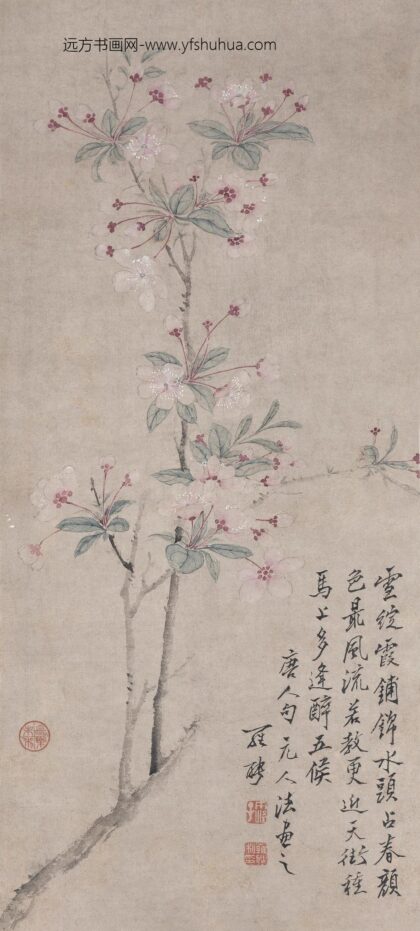 远方书画网-www.yfshuhua.com
雪綻霞鋪錦水頭占春顏
色最風流若教更近天街種
馬上多逢醉五侯
唐人句元人法畫之
羅聘